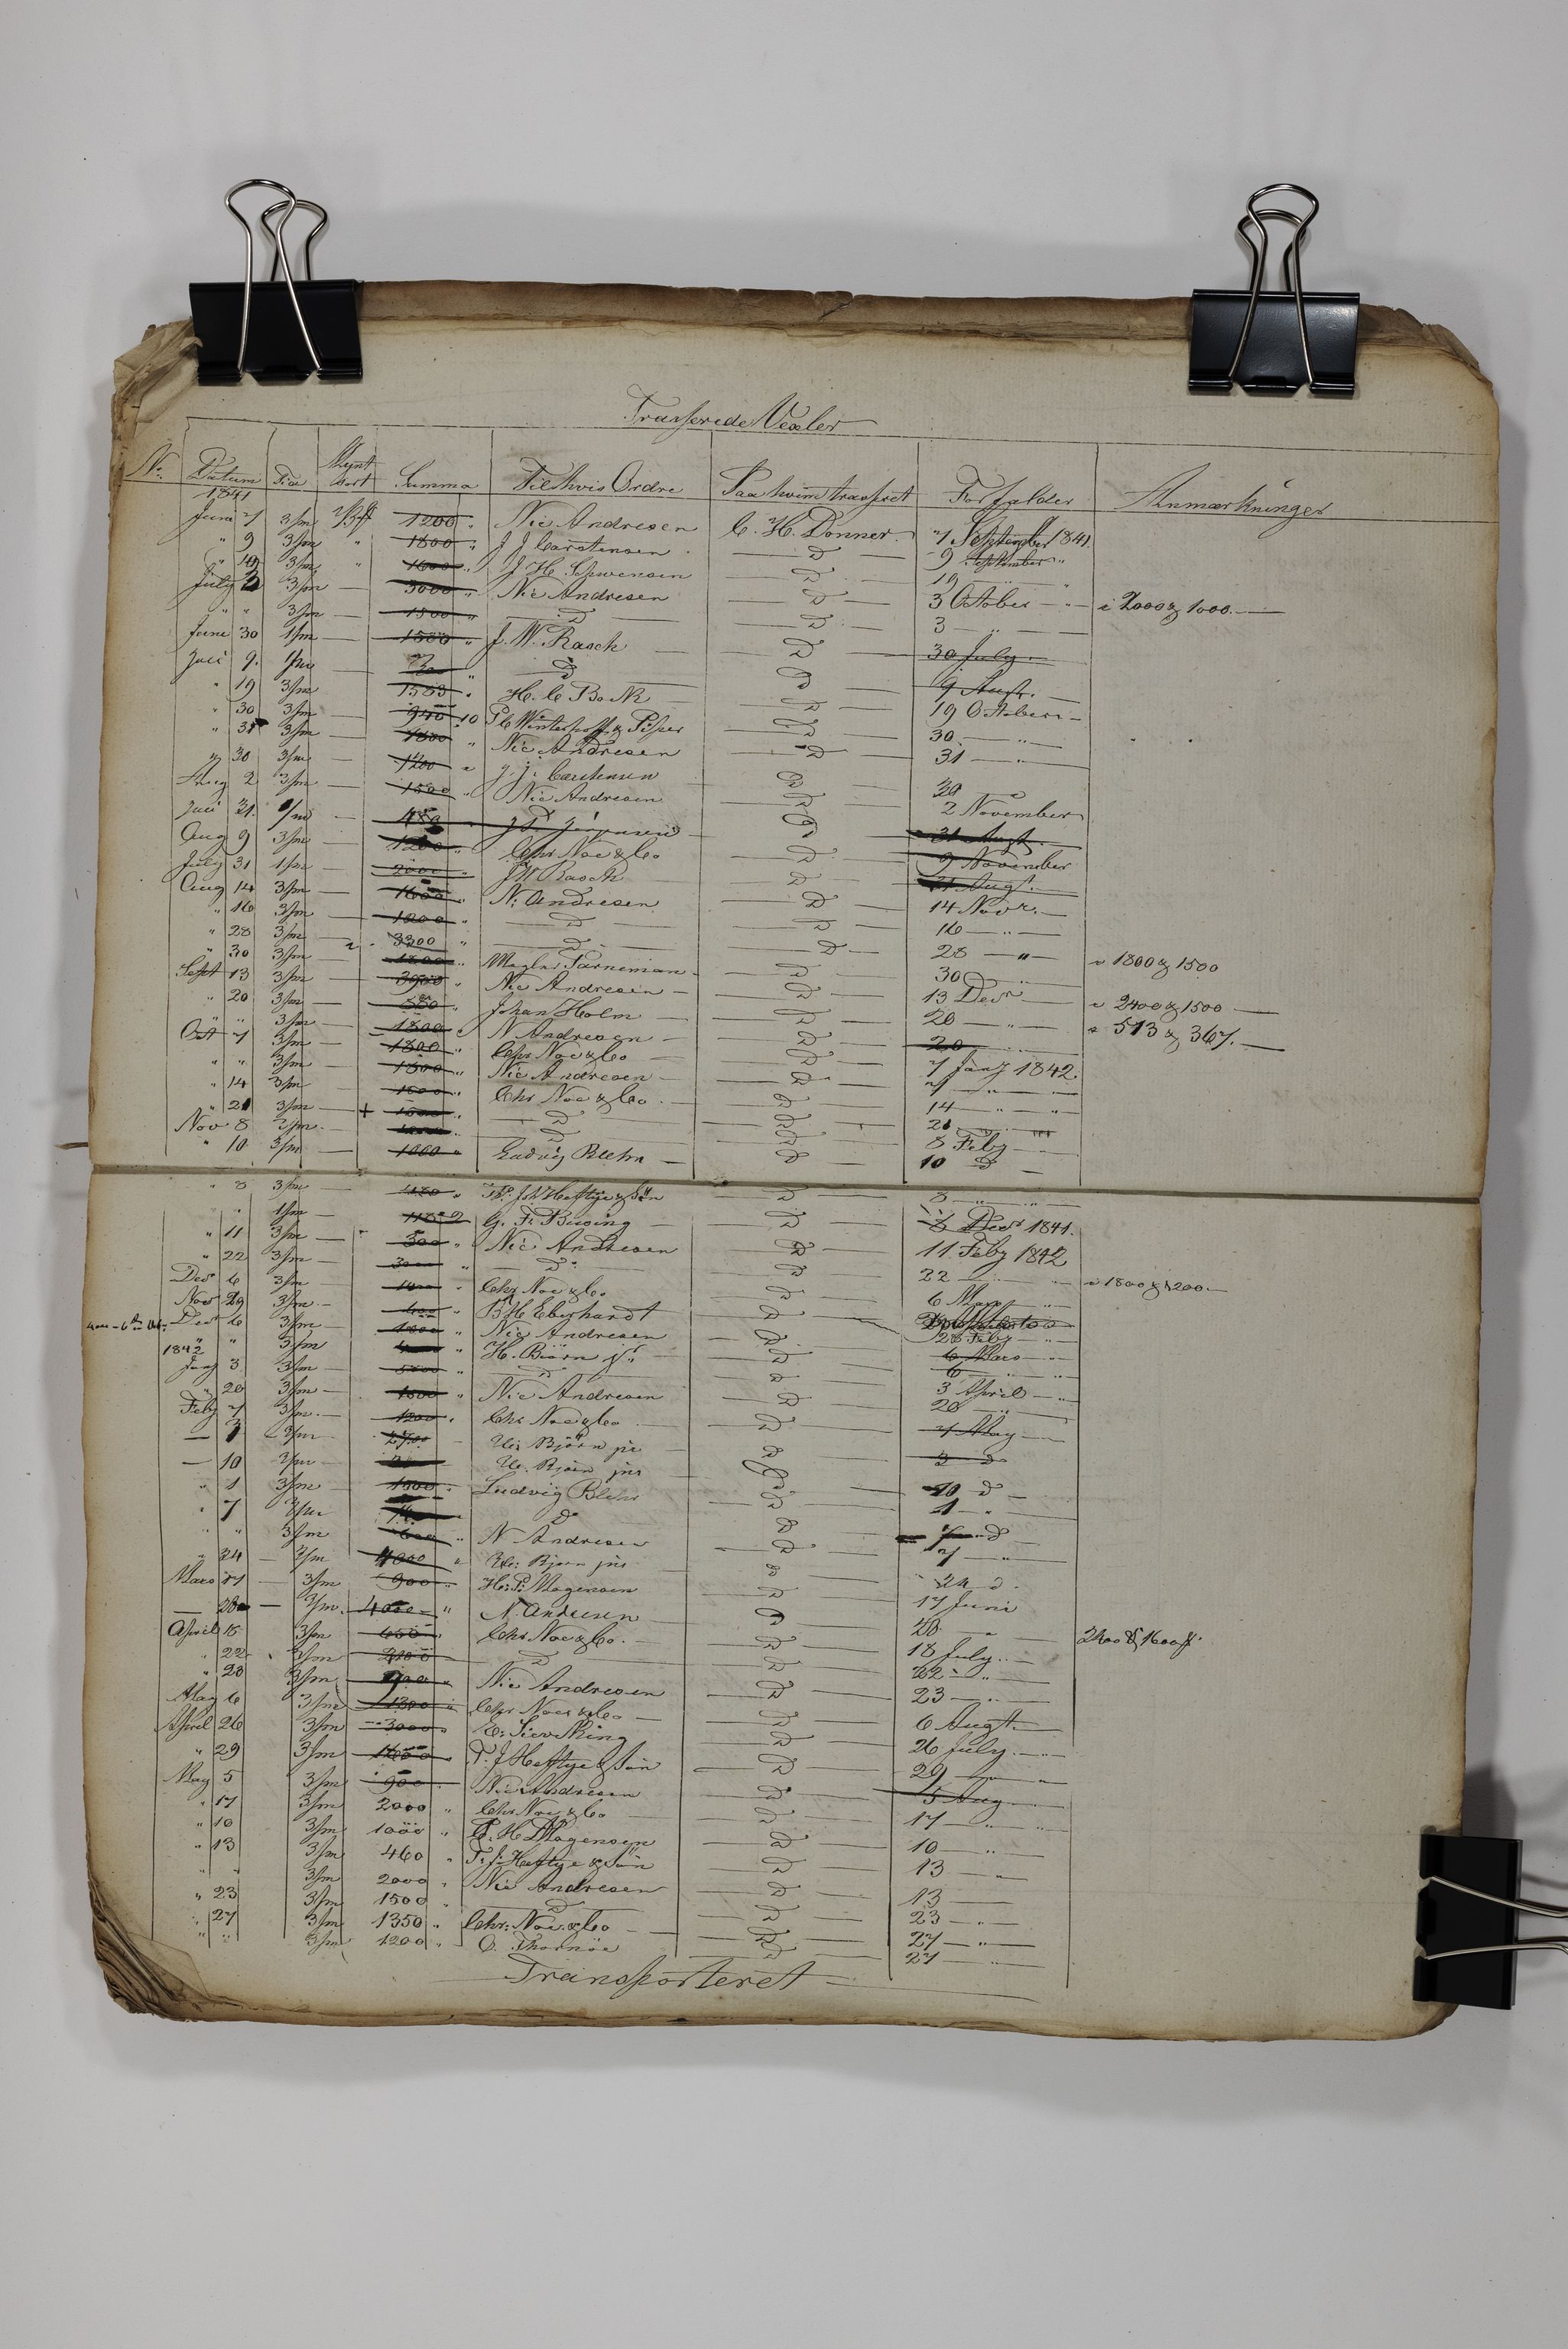 Trasserede Vexler
No. Datum Tid Mynt Sort Summa Til hvis Ordre Paa hvem trasseret Forfalder Anmærkninger
1841
Juni 7 3/m 1200 " Nic Andresen C. H. Donner 7 September 1841
" 9 3/m " 1800 " J J Carstensen D 9 September "
" 19 3/m " 1600 " J H. Schwensen D 19 — "
July 3 3/m — 3000 " Nic Andresen D 3 October — " — a 2000 & 1000 —
" " 3/m — 1500 " D D 3 — " —
Juni 30 1/m — 1500 " J. W. Rasch — D 30 July —
Juli 9. 1/m — D D 9 Augt. —
" 19 3/m — 1583 " H. C Bock D 19 October —
" 30 3/m — 940 10 P C Winterhoff & Piper D 30 — " —
" 31 3/m — 1800 " Nic Andresen D 31 — "
" 30 3/m — 1200 " J. J. Carstensen D 30
Aug 2 3/m — 1500 " Nic Andresen D 2 November
Juli 31. /m — D 31 Augt. —
Aug 9 3/m — 1200 " Chr Noe & Co D 9 November
July 31 1/m — 2000 " J W Rasch D 31 Augt. —
Aug 14 3/m — 1600 " N. Andresen D 14 Novr. —
" 16 3/m — 1200 " D D 16 — " —
" 28 3/m — 3300 " D D 28 — " — a 1800 & 1500
" 30 3/m 1200 " — D 30 — "
Sept 13 3/m — 3900 " Nic Andresen — D 13 Decr — a 2400 & 1500 —
" 20 3/m — 880 " Johan Holm — D 20 — " — a 513 & 367. —
" " 3/m — 1800 " N Andresen — D 20 —
Oct 7 3/m — 1800 " Chr Noe & Co — D 7 Jany 1842.
" " 3/m — 1800 " Nic Andresen — D 7 — " — "
" 14 3/m — 1500 " Chr Noe & Co. — D 14 — " — "
" 21 3/m — + 1500 " D D 21 — " —
Nov 8 3/m. — D D 8 Feby —
" 10 3/m — 1000 " Ludvig Blehr — D 10 D —
" 8 3/m — " Th. Joh Heftye & Sön D 8 — " — "
" " 1/m — G. F. Büsing — D 8 Decr 1841.
" 11 3/m — 500 " Nic Andresen D 11 Feby 1842
" 22 3/m — 3000 " D D 22 — " — a 1800 & 1200 —
Decr 6 3/m — " Chr Noe & Co D 6 Mars — "
Novr 29 3/m — " B H Eberhardt D 28 Feby — "
Decr 6 3/m — 1000 " Nic Andresen D 6 Mars — "
" " 3/m " H. Biørn Jr. D 6 — "
1842
Jany 3 3/m — " D D 3 April — "
" 20 3/m — 1500 " Nic Andresen D 20 — " —
Feby 7 3/m. — 1200 " Chr Noe & Co — D 7 May —
— 3 3/m — 2700 — H. Björn jr — D 3 d
— 10 3/m — H. Björn jr D 10 d —
" 1 3/m — 1500 " Ludvig Blehr D 1 — "
" 7 3/m D D 7 d
" " 3/m 600 " N Andresen D 7 — "
" 24 — 3/m 4000 " H. Bjørn jr D 24 d.
Mars 17 — 3/m 900 " H. P. Mogensen D 17 Juni
— 28 — 3/m. 4000 " N. Andresen D 28 — " 2400 & 1600
April 18 3/m 650 " Chr Noe & Co. — D 18 July —
" 22 3/m 2100 D D 22 — "
" 23 3/m " Nic Andresen D 23 — " —
May 6 3/m 1300 " Chr Noe & Co — D 6 Augt. —
April 26 3/m 3000 " Sieveking D 26 July —
" 29 3/m T. J Heftye & Sön — D 29 — "
May 5 3/m 900 Nic Andresen D 5 Aug —
" 17 3/m 2000 " Chr Noe & Co D 17 — " —
" 10 3/m 1000 " H Mogensen D 10 — " —
" 13 3/m 460 " T. J. Heftye & Sön D 13 — "
" " 3/m 2000 " Nic Andresen D 13 —
" 23 3/m 1500 " D D 23 — " —
" 27 3/m 1350 " Chr: Noe & Co — D 27 — " —
" " 3/m 1200 " O. Thornöe D 27 — "
Transporteret